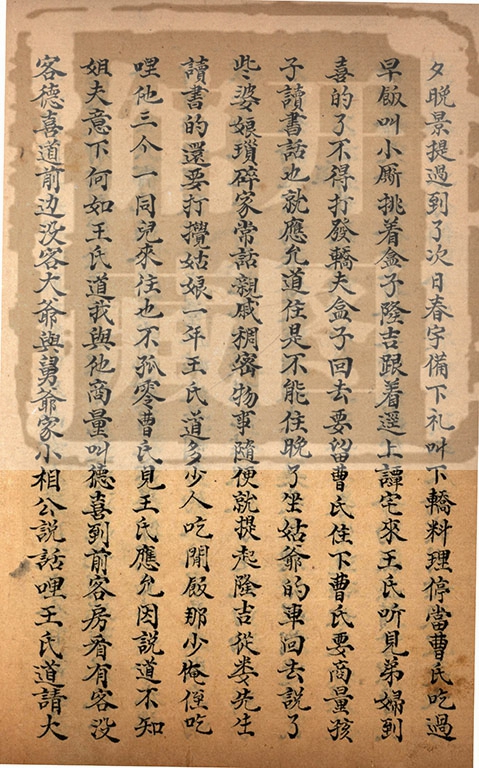 夕晚景提過到了次日春宇備下礼叫下轎料理停當曹氏吃過
早飯叫小厮挑着盒子隆吉跟着逕上譚宅來王氏听見弟婦到
喜的了不得打發轎夫盒子回去要留曹氏住下曹氏要商量孩
子讀書話也就應允道住是不能住晚了坐姑爺的車回去說了
些婆娘瑣碎家常話親戚稠密物事隨便就提起隆吉從婁先生
讀書的還要打攪姑娘一年王氏道多少人吃閒飯那少俺侄吃
哩他三个一同兒來住也不孤零曹氏見王氏應允因說道不知
姐夫意下何如王氏道我與他商量叫德喜到前客房看有客没
客德喜道前边没客大爺與舅爺家小相公說話哩王氏道請大